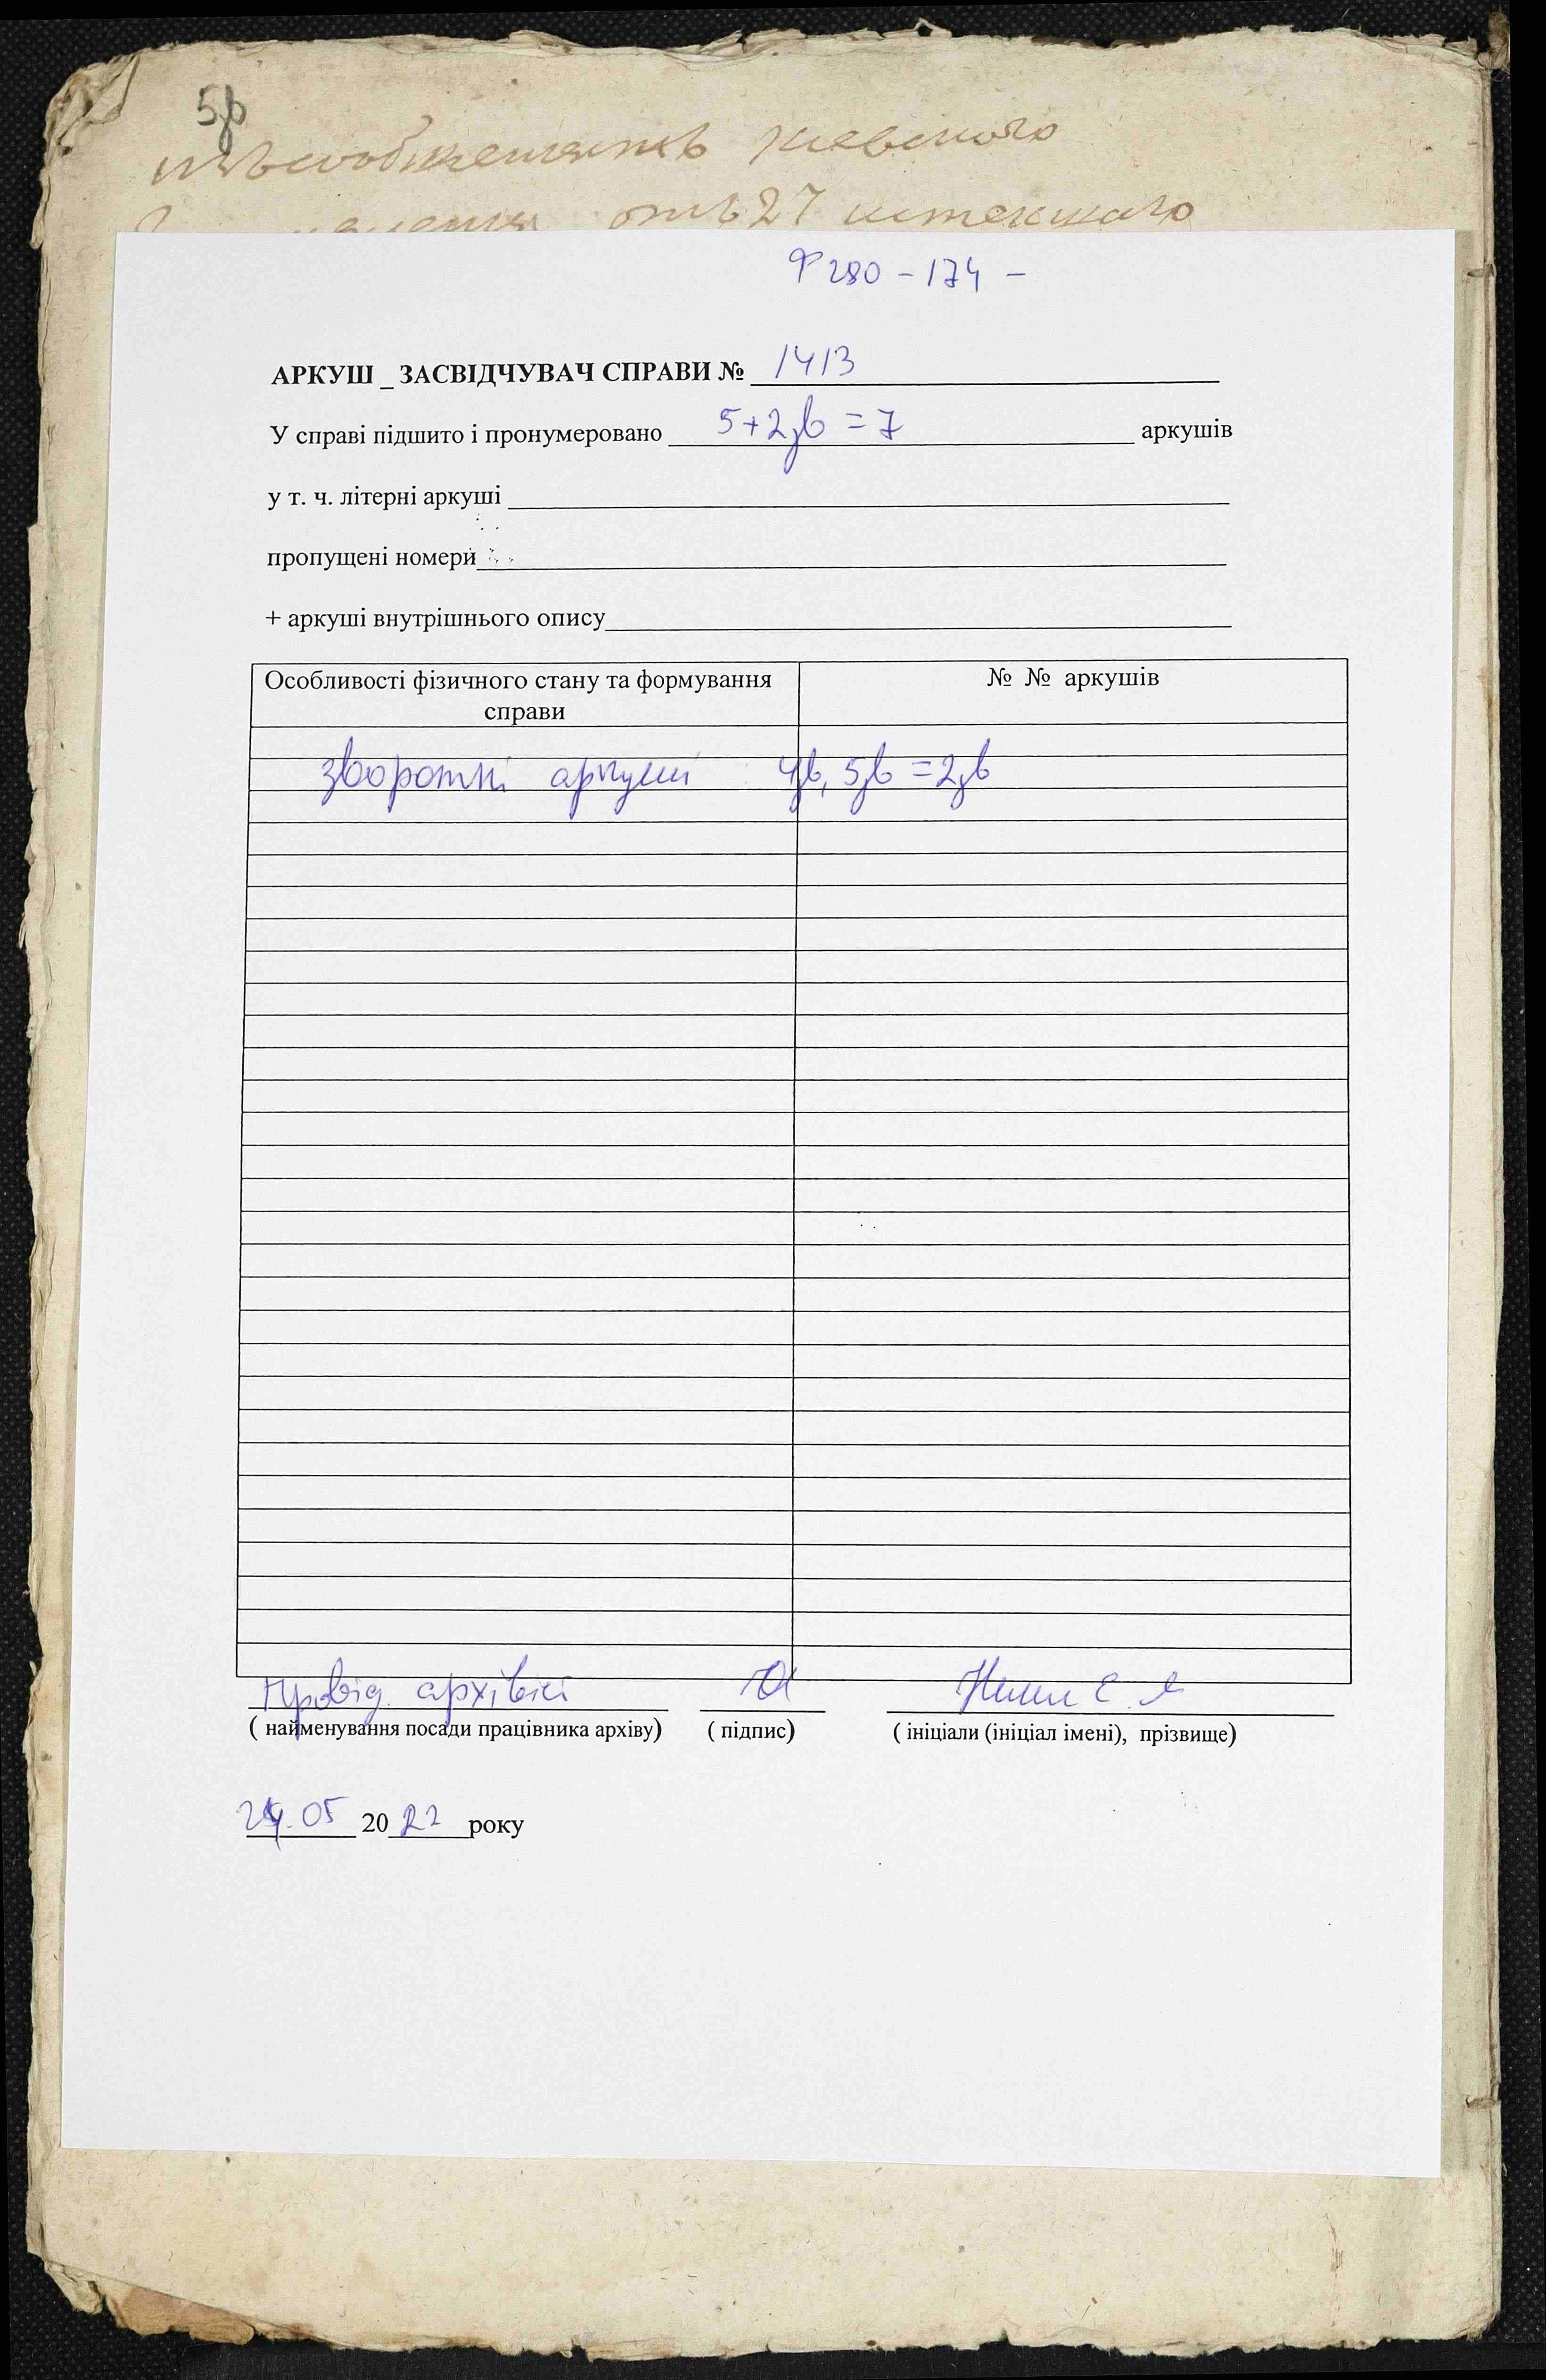 5зв
киевского
отъ 27 истекшаго
Ф 280 - 174 -
АРКУШ _ ЗАСВІДЧУВАЧ СПРАВИ № 1413
У справі підшито і пронумеровано 5+2зв = 7 аркушів
у т. ч. літерні аркуші
пропущені номери
+ аркуші внутрішнього опису
Особливості фізичного стану та формування справи
№ № аркушів
зворотні аркуші 4зв, 5зв = 2зв
Провід. архівіст
( найменування посади працівника архіву) ( підпис) ( ініціали (ініціал імені), прізвище)
05 2022 року